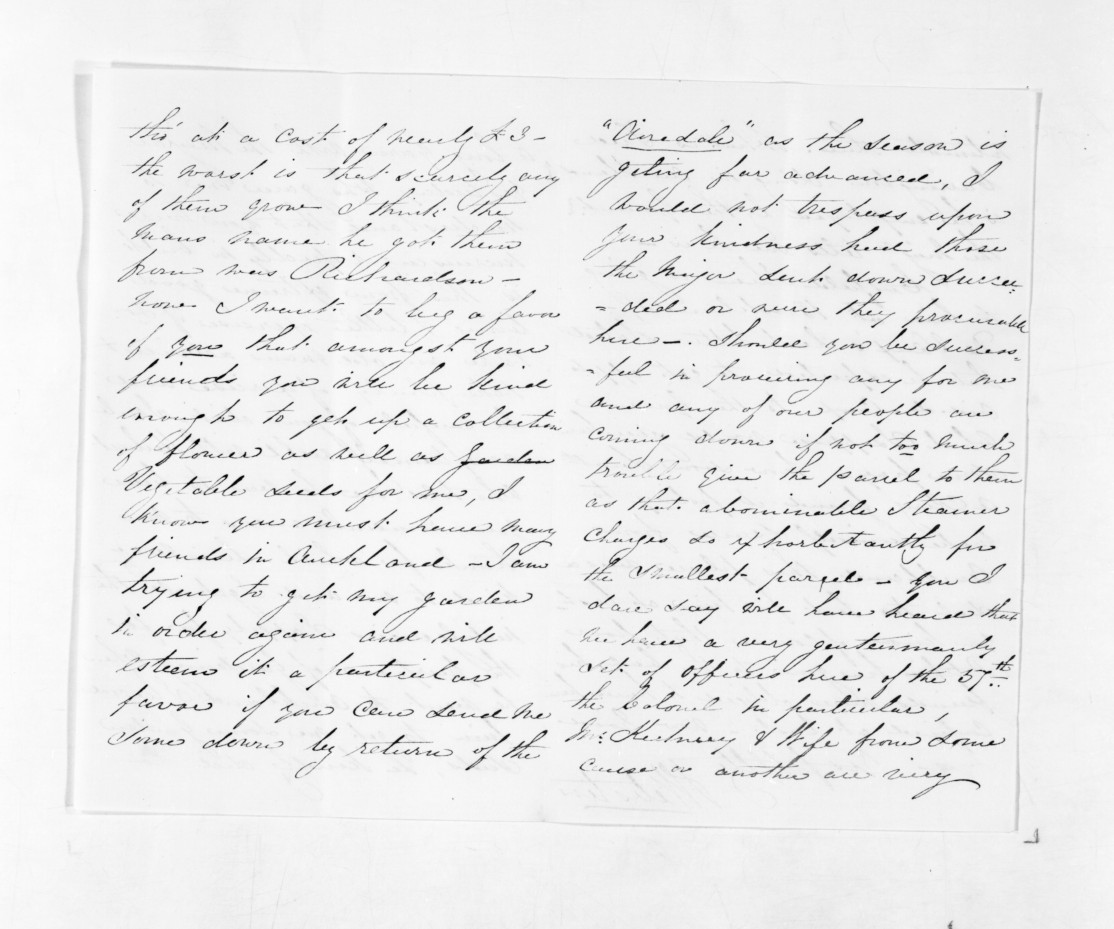 tho' at a cost of nearly £3 -
the worst is that scarcely any
of them grow I think the
mans name he got them
from was Richardson -
now I want to beg a favor
of you that amongst your
friends you will be kind
enough to get up a collection
of flower as well as garden
Vegetable seeds for me, I
know you must have many
friends in Auckland - I am
trying to get my garden
in order again and will
esteem it a particular
favor if you can send me
some down by return of the
"Airedale" as the season is
geting far advanced, I
would not trespass upon
your kindness had those
the Major sent down succee-
-ded or were they procurable
here -. Should you be success-
-ful in procuring any for me
and any of our people are
coming down if not too much
trouble give the parcel to them
as that abominable Steamer
charges so exhorbitantly for
the smallest parcel - You I
dare say will have heard that
we have a very gentlemanly
set of officers here of the 57th
the Colonel in particular,
& Wife from some
cause or another are very